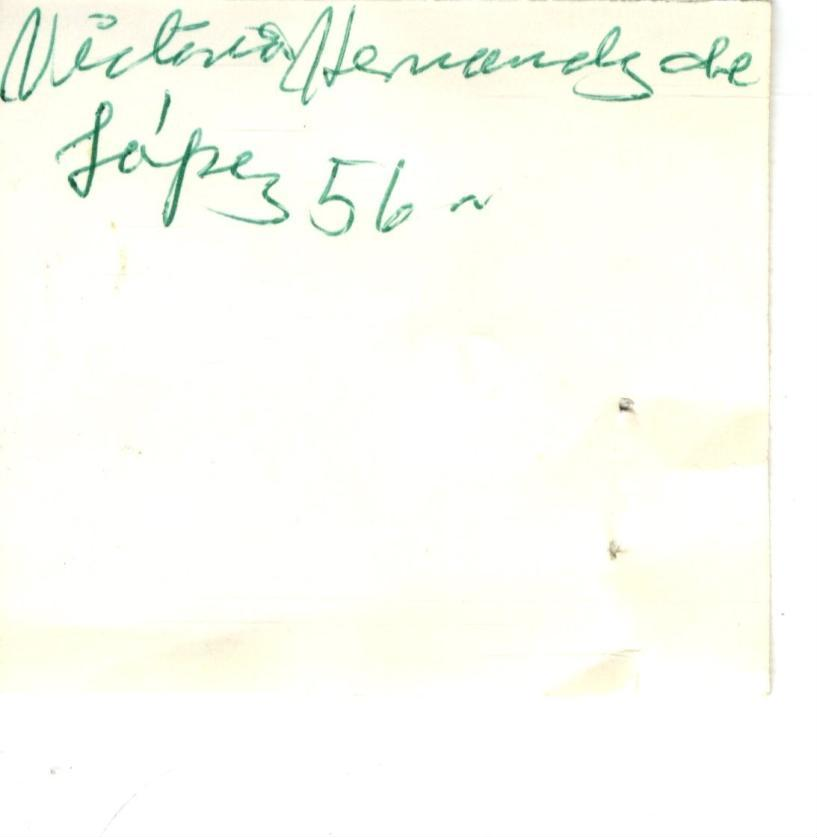 Victoria Hernandz de
López 56 ~